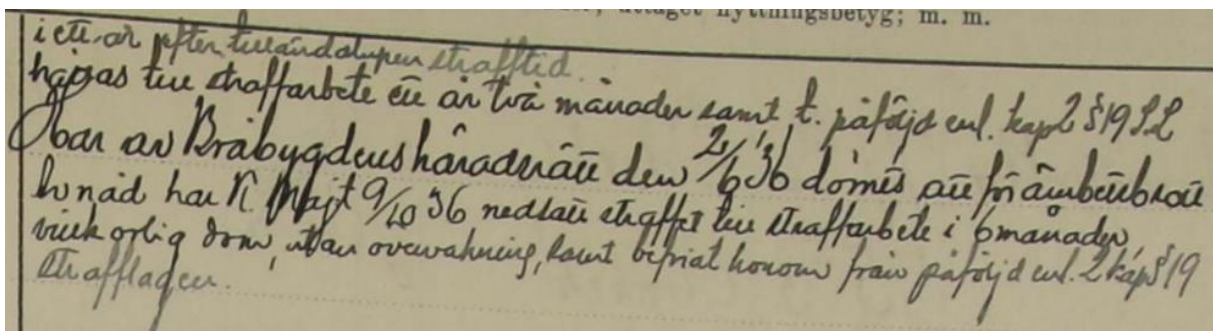 uttaget flyttningsbetyg; m. m.
i ett år efter tilländalupen strafftid.
hållas till straffarbete ett år två månader samt t. påföljd enl. kap 2 § 19 S.L
har av Bråbygdens häradsrätt den 2/6 36 dömts att för ämbetsbrott
nåd har K. Majt 9/10 36 nedsatt straffet till straffarbete i 6 månader,
villkorlig dom, utan övervakning, samt befriat honom från påföljd enl. 2 kap § 19
strafflagen.